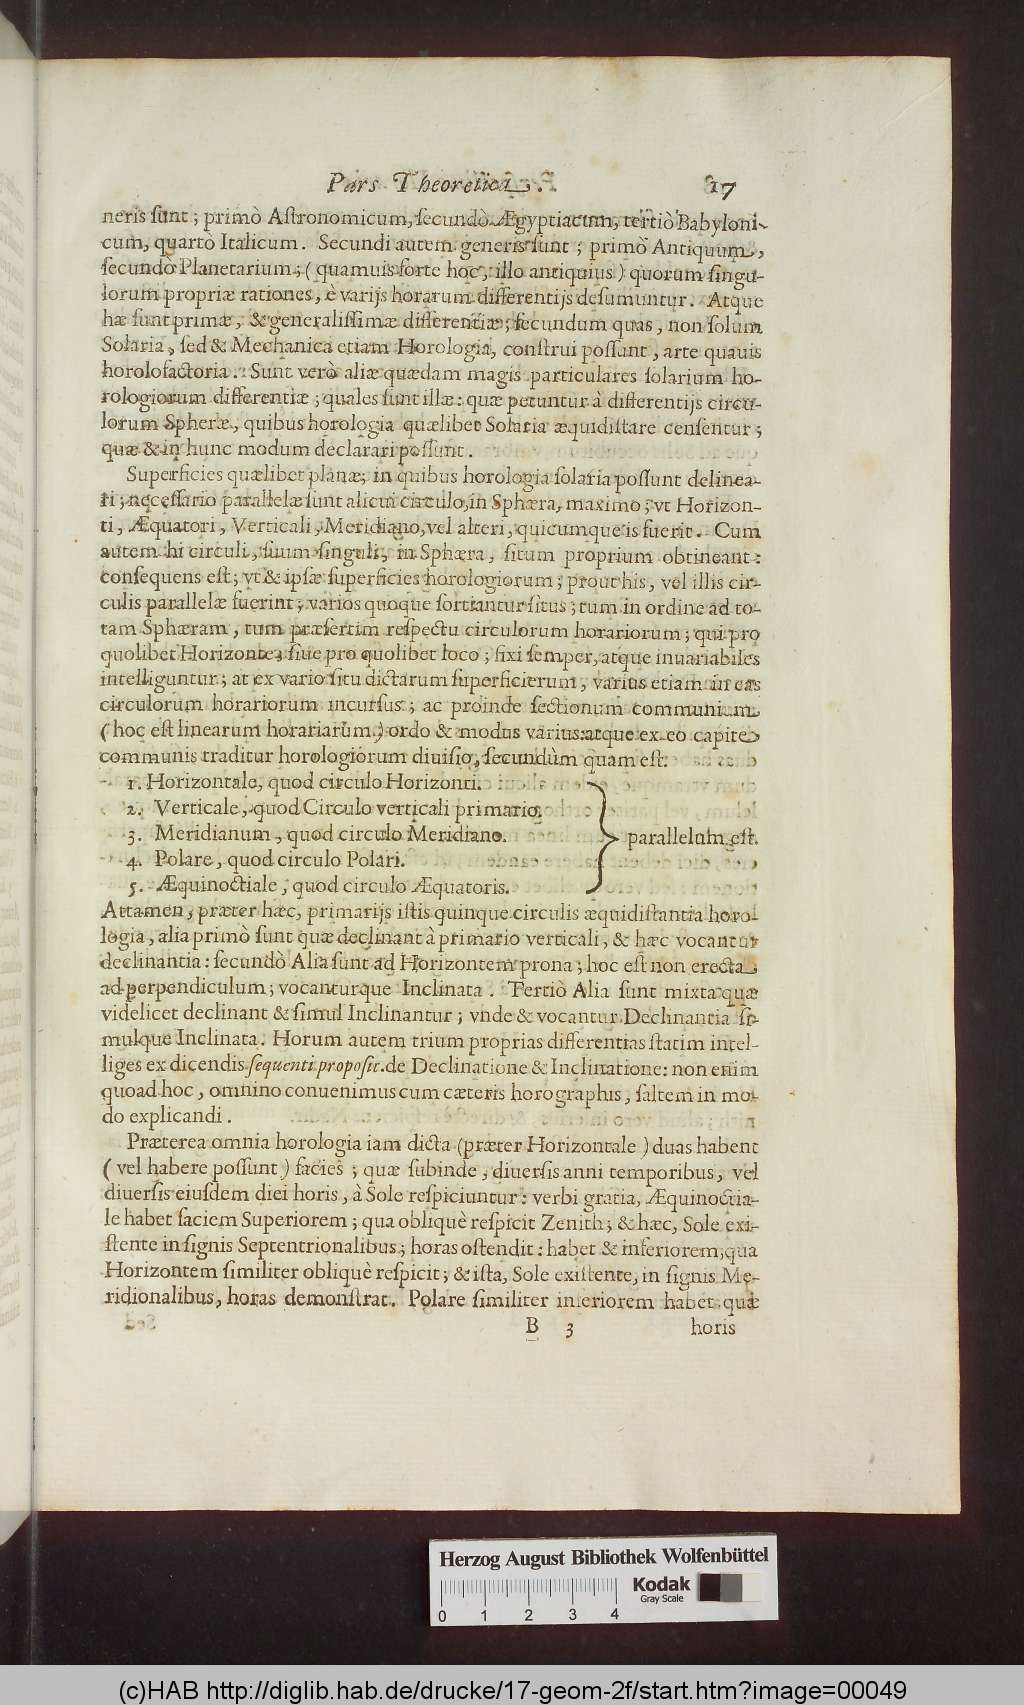 Pars Theoretica. 17
neris sunt; primò Astronomicum, secundò Ægyptiacum, tertiò Babyloni-
cum, quartò Italicum. Secundi autem generis sunt; primò Antiquum,
secundò Planetarium; (quamuis forte hoc, illo antiquius) quorum singu-
lorum propriæ rationes, è varijs horarum differentijs desumuntur. Atque
hæ sunt primæ, & generalissimæ differentiæ; secundum quas, non solum
Solaria, sed & Mechanica etiam Horologia, construi possunt, arte quauis
horolofactoria. Sunt verò aliæ quædam magis particulares solarium ho-
rologiorum differentiæ; quales sunt illæ: quæ petuntur à differentijs circu-
lorum Spheræ, quibus horologia quælibet Solaria æquidistare censentur;
quæ & in hunc modum declarari possunt.
Superficies quælibet planæ; in quibus horologia solaria possunt delinea-
ri; necessario parallelæ sunt alicui circulo, in Sphæra, maximo; vt Horizon-
ti, Æquatori, Verticali, Meridiano, vel alteri, quicumque is fuerit. Cum
autem hi circuli, suum singuli, in Sphæra, situm proprium obtineant:
consequens est; vt & ipsæ superficies horologiorum; prout his, vel illis cir-
culis parallelæ fuerint; varios quoque sortiantur situs; tum in ordine ad to-
tam Sphæram, tum præsertim respectu circulorum horariorum; qui pro
quolibet Horizonte; siue pro quolibet loco; fixi semper, atque inuariabiles
intelliguntur; at ex vario situ dictarum superficierum, varius etiam in eas
circulorum horariorum incursus; ac proinde sectionum communium
(hoc est linearum horariarum) ordo & modus varius: atque ex eo capite
communis traditur horologiorum diuisio, secundùm quam est.
1. Horizontale, quod circulo Horizonti.
2. Verticale, quod Circulo verticali primario.
3. Meridianum, quod circulo Meridiano. parallelum est.
4. Polare, quod circulo Polari.
5. Æquinoctiale, quod circulo Æquatoris.
Attamen, præter hæc, primarijs istis quinque circulis æquidistantia horo-
logia, alia primò sunt quæ declinant à primario verticali, & hæc vocantur
declinantia: secundò Alia sunt ad Horizontem prona; hoc est non erecta
ad perpendiculum; vocanturque Inclinata. Tertiò Alia sunt mixta quæ
videlicet declinant & simul Inclinantur; vnde & vocantur Declinantia si-
mulque Inclinata. Horum autem trium proprias differentias statim intel-
liges ex dicendis sequenti proposit. de Declinatione & Inclinatione: non enim
quoad hoc, omnino conuenimus cum cæteris horographis, saltem in mo-
do explicandi.
Præterea omnia horologia iam dicta (præter Horizontale) duas habent
(vel habere possunt) facies; quæ subinde, diuersis anni temporibus, vel
diuersis eiusdem diei horis, à Sole respiciuntur: verbi gratia, Æquinoctia-
le habet faciem Superiorem; qua obliquè respicit Zenith; & hæc, Sole exi-
stente in signis Septentrionalibus; horas ostendit: habet & inferiorem; qua
Horizontem similiter obliquè respicit; & ista, Sole existente, in signis Me-
ridionalibus, horas demonstrat. Polare similiter inferiorem habet quæ
B 3 horis
Herzog August Bibliothek Wolfenbüttel
Kodak
Gray Scale
0 1 2 3 4
(c)HAB http://diglib.hab.de/drucke/17-geom-2f/start.htm?image=00049